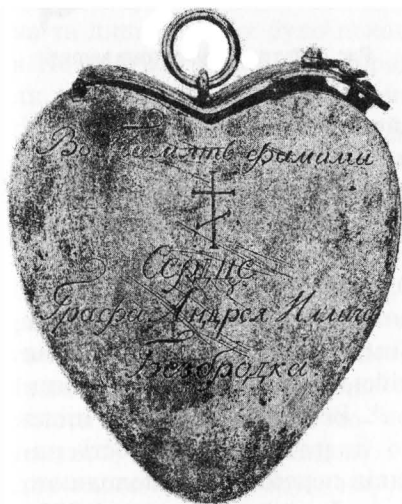 Во Память фамили
Сердце
Графа Андрея Ильича
Безбродка